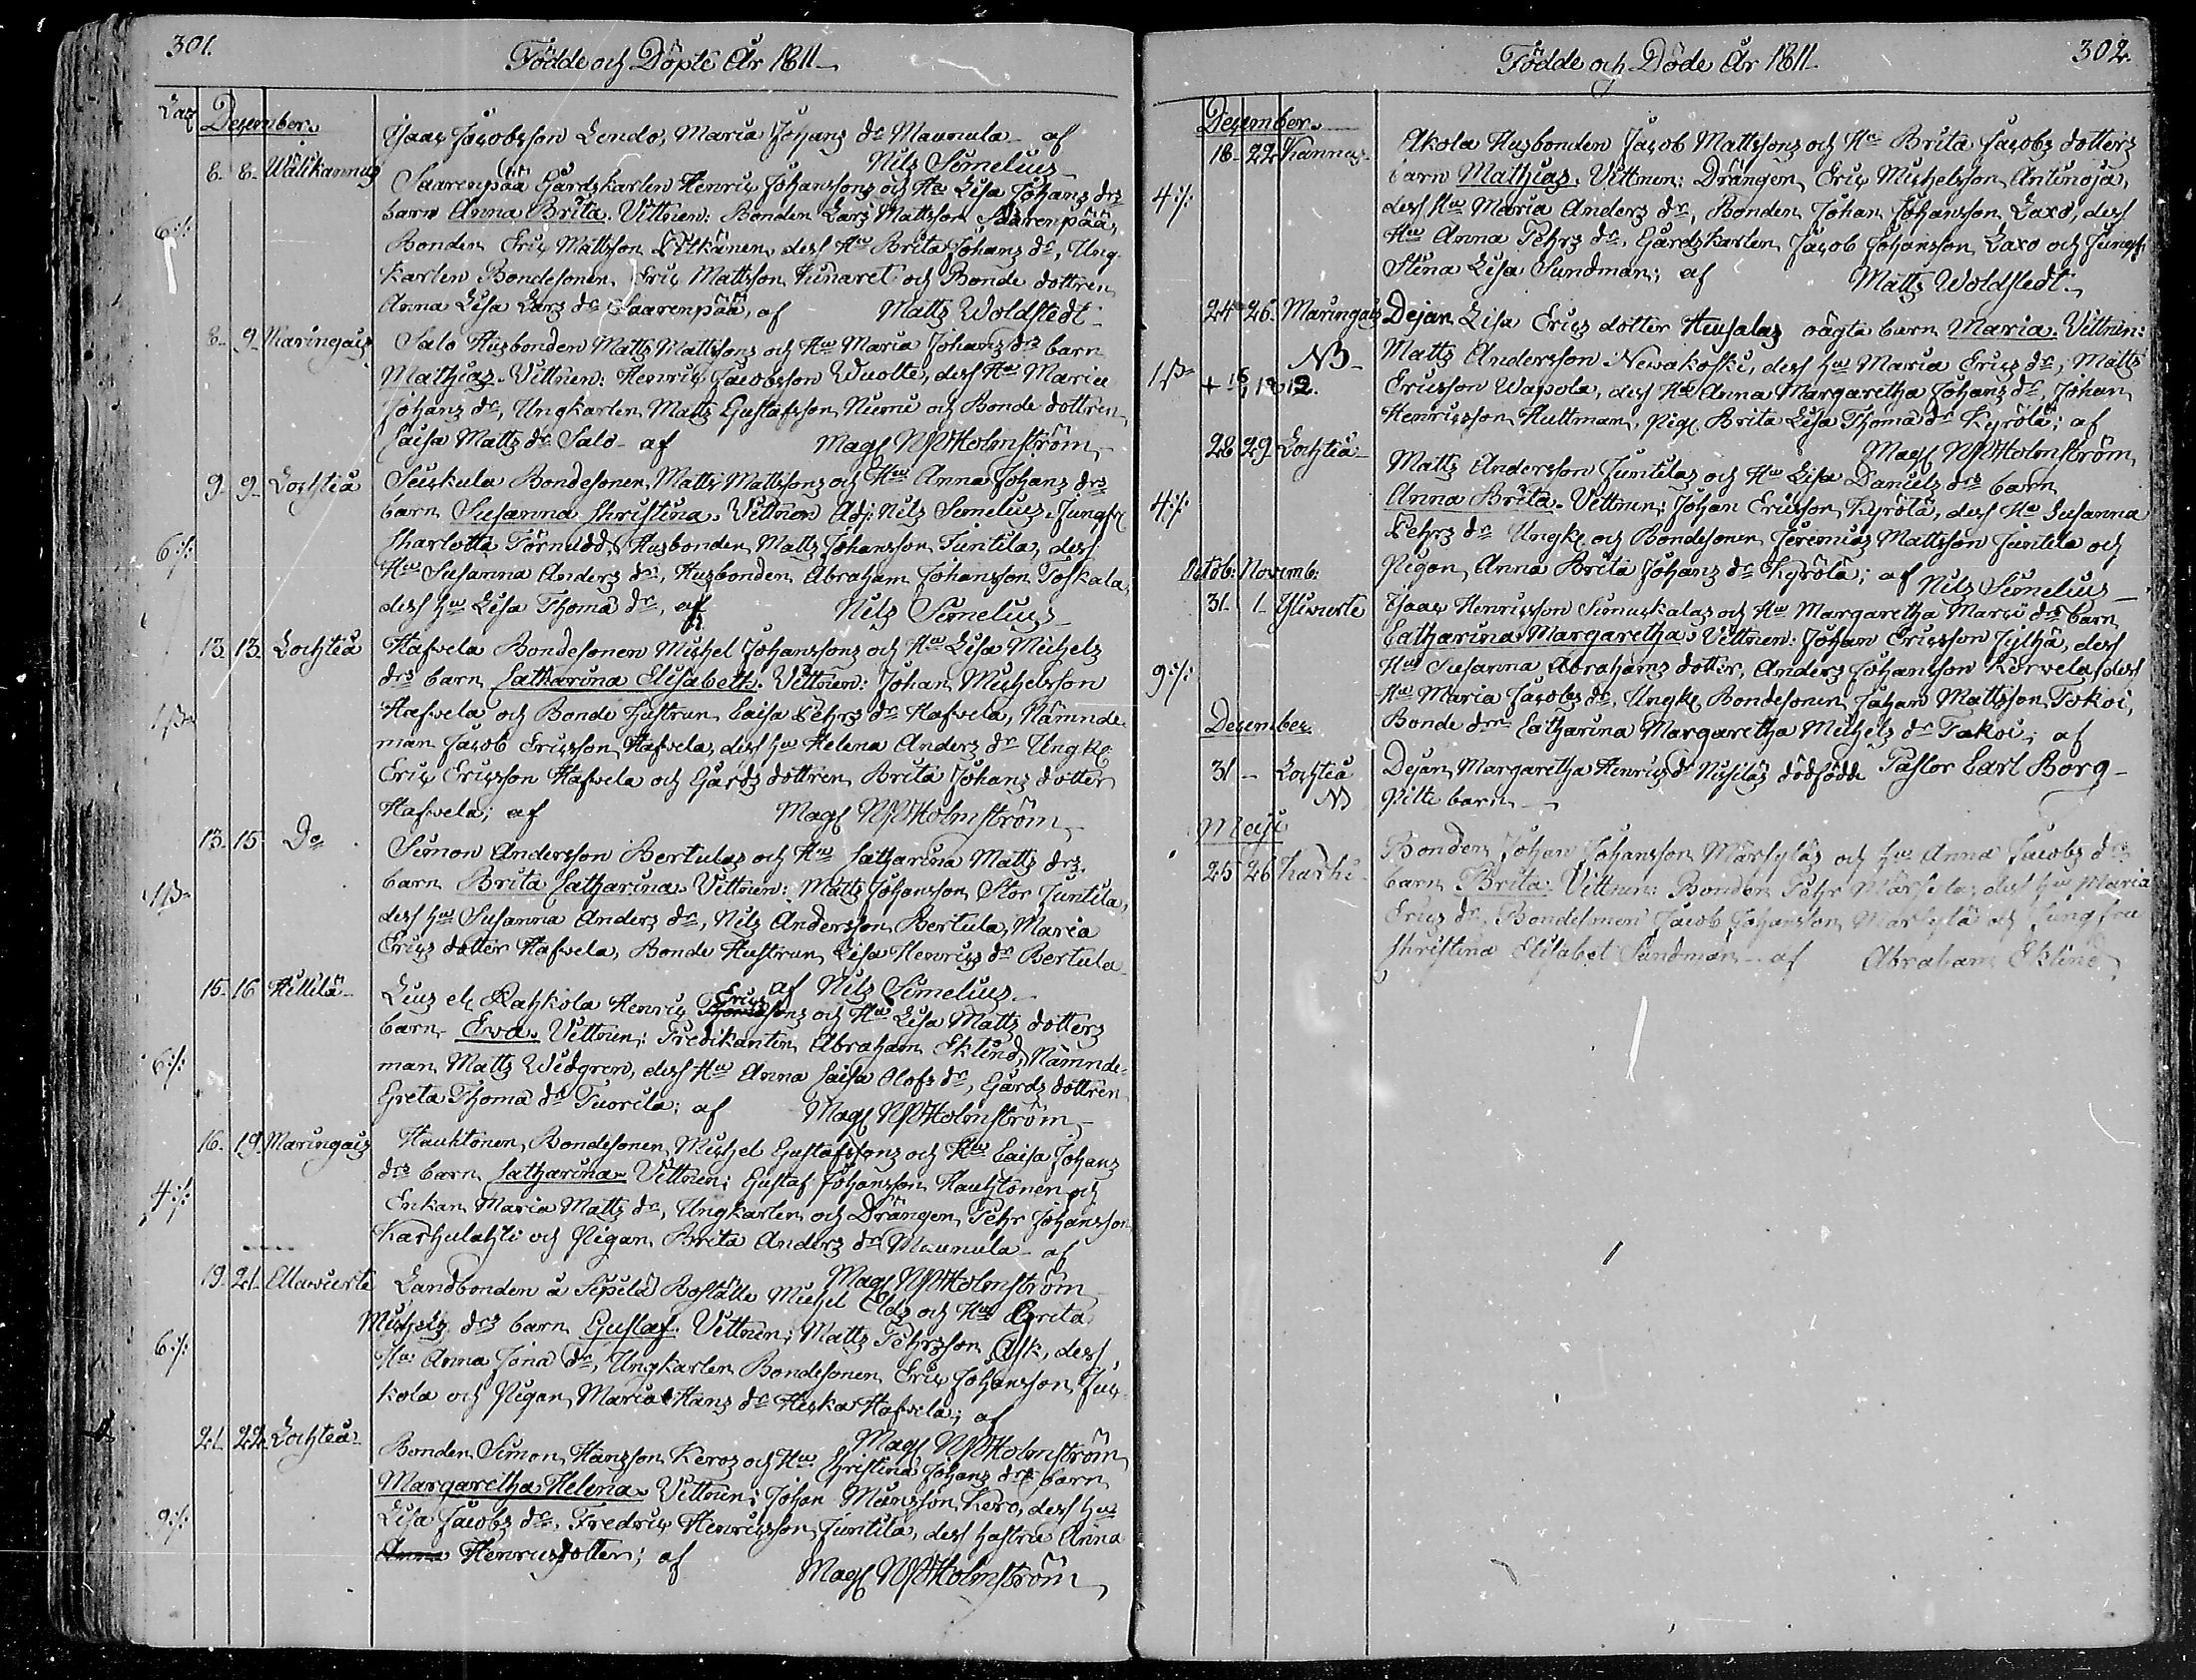 301.
Födde och Döpte År 1811
Desember.
Isaac Jacobsson Lendo, Maria Johans dr Maunula af
Nils Simelius
8. 8. Wälikannus Saarenpää Gårdskarlen Henric Johanssons och Hu Lisa Johans drs
barn Anna Brita. Vittnen: Bonden Lars Mattsson Saarenpää,
6:/: Bonden Eric Mattsson Pölkänen, dess Hu Brita Johans dr, Ung-
karlen Bondesonen Eric Mattsson Kunaret och Bonde dottren
Anna Lisa Lars dr Saarenpää, af Matts Woldstedt
8. 9. Maringais Salo Husbonden Matts Mattssons och Hu Maria Johans drs barn
Mathias. Vittnen: Henric Jacobsson Wuolte, dess Hu Maria
Johans dr, Ungkarlen Matts Gustafsson Nurmi och Bonde dottren
Caisa Matts dr Salo af Mag NPHolmström
9. 9. Lochteå Seuskula Bondesonen Matts Mattssons och Hu Anna Johans drs
barn Susanna Christina. Vittnen Adj: Nils Simelius, Jungfr
6:/: Charlotta Törnudd, Husbonden Matts Johansson Juntila, dess
Hu Susanna Anders dr, Husbonden Abraham Johansson Toskala,
dess hu Lisa Thoma dr, af Nils Simelius
13. 13. Lochteå Hafvela Bondesonen Michel Johanssons och Hu Lisa Michels
drs barn Catharina Elisabeth. Vittnen: Johan Michelsson
Hafvela och Bonde hustrun Caisa Pehrs dr Hafvela, Nämnde-
man Jacob Ericsson Hafvela, dess hu Helena Anders dr Ungk
Eric Ericsson Hafvela och Gårds dottren Brita Johans dotter
Hafvela; af Mag NPHolmström
13. 15. Do Simon Andersson Bertulas och Hu Catharina Matts drs
barn Brita Catharina. Vittnen: Matts Johansson Stor Juntila,
dess hu Susanna Anders dr, Nils Andersson Bertula, Maria
Erics dotter Hafvela, Bonde Hustrun Lisa Henrics dr Bertula
af Nils Simelius
15. 16 Hillilä Leus el Rahkola Henric Ericssons och Hu Lisa Matts dotters
barn Ewa. Vittnen: Predikanten Abraham Eklind, Nämnde-
6:/: man Matts Widgren, dess Hu Anna Caisa Olofs dr, Gårds dottren
Greta Thoma dr Tuorila; af Mag NPHolmström
16. 19. Maringais Hauhtonen Bondesonen Michel Gustafssons och Hu Caisa Johans
drs barn Catharina. Vittnen: Gustaf Johansson Hauhtonen och
4:/: Enkan Maria Matts dr, Ungkarlen och Drängen Pehr Johansson
Karhulahti och Pigan Brita Anders dr Maunula af
Mag NPHolmström
19. 21. Ellawierte Landbonden å Sipilä Boställe Michel Elds och Hu Brita
Michels drs barn Gustaf. Vittnen: Matts Pehrsson Ask, dess
6:/: Hu Anna Jona dr, Ungkarlen Bondesonen Eric Johansson Juc-
kola och Pigan Maria Hans dr Hiska Hafvela; af
Mag NPHolmström
21. 22. Lochteå Bonden Simon Hansson Keros och Hu Christina Johans drs barn
Margaretha Helena. Vittnen: Johan Månsson Kero, dess hu
9:/: Lisa Jacobs dr. Fredric Henricsson Juntila, dess hustru Anna
Anna Henricsdotter; af Mag NPHolmström
Födde och Döde År 1811
302.
Desember.
18. 22 Kannus Akola Husbonden Jacob Mattssons och Hu Brita Jacobs dotters
barn Mathias. Vittnen: Drängen Eric Michelsson Antinoja,
4:/: dess Hu Maria Anders dr, Bonden Johan Johansson Laxo, dess
Hu Anna Pehrs dr, Gårdskarlen Jacob Johansson Laxo och Jungfr
Stina Lisa Sundman; af Matts Woldstedt
24 26. Maringais Dejan Lisa Erics dotter Huusalas oägta barn Maria. Vittnen:
NB Matts Andersson Newakoski, dess hu Maria Erics dr, Matts
Ericsson Wapola, dess Hu Anna Margaretha Johans dr, Johan
Henricsson Hultman, Pig. Brita Lisa Thoma dr Kyrölä; af
Mag NPHolmström
28 29 Lochteå Matts Andersson Juntilas och Hu Lisa Daniels drs barn
4:/: Anna Brita. Vittnen: Johan Ericsson Kyrölä, dess Hu Susanna
Pehrs dr Ungk och Bondesonen Jeremias Mattsson Juntila och
Pigan Anna Brita Johans dr Kyrölä; af Nils Simelius
Octob: Novemb:
31. 1. Ylivierte Isaac Henricsson Simuskalas och Hu Margaretha Marci drs barn
Catharina Margaretha. Vittnen: Johan Ericsson Jylhä, dess
9:/: Hu Susanna Abrahams dotter, Anders Johansson Kerwela, dess
Hu Maria Jacobs dr, Ungk Bondesonen Johan Mattsson Tokoi,
Bonde drn Catharina Margaretha Michels dr Tokoi; af
Pastor Carl Borg
Desember.
31 Lochteå Dejan Margaretha Henrics dr Nisilas dödfödde
NB Pilte barn
Maji
25 26 Karhi Bonden Johan Johansson Märsyläs och hu Anna Jacobs drs
barn Brita. Vittnen: Bonden Pehr Märsylä, dess hu Maria
Erics dr. Bondesonen Jacob Johansson Märsylä och Jungfru
Christina Elisabet Sundman af Abraham Eklind